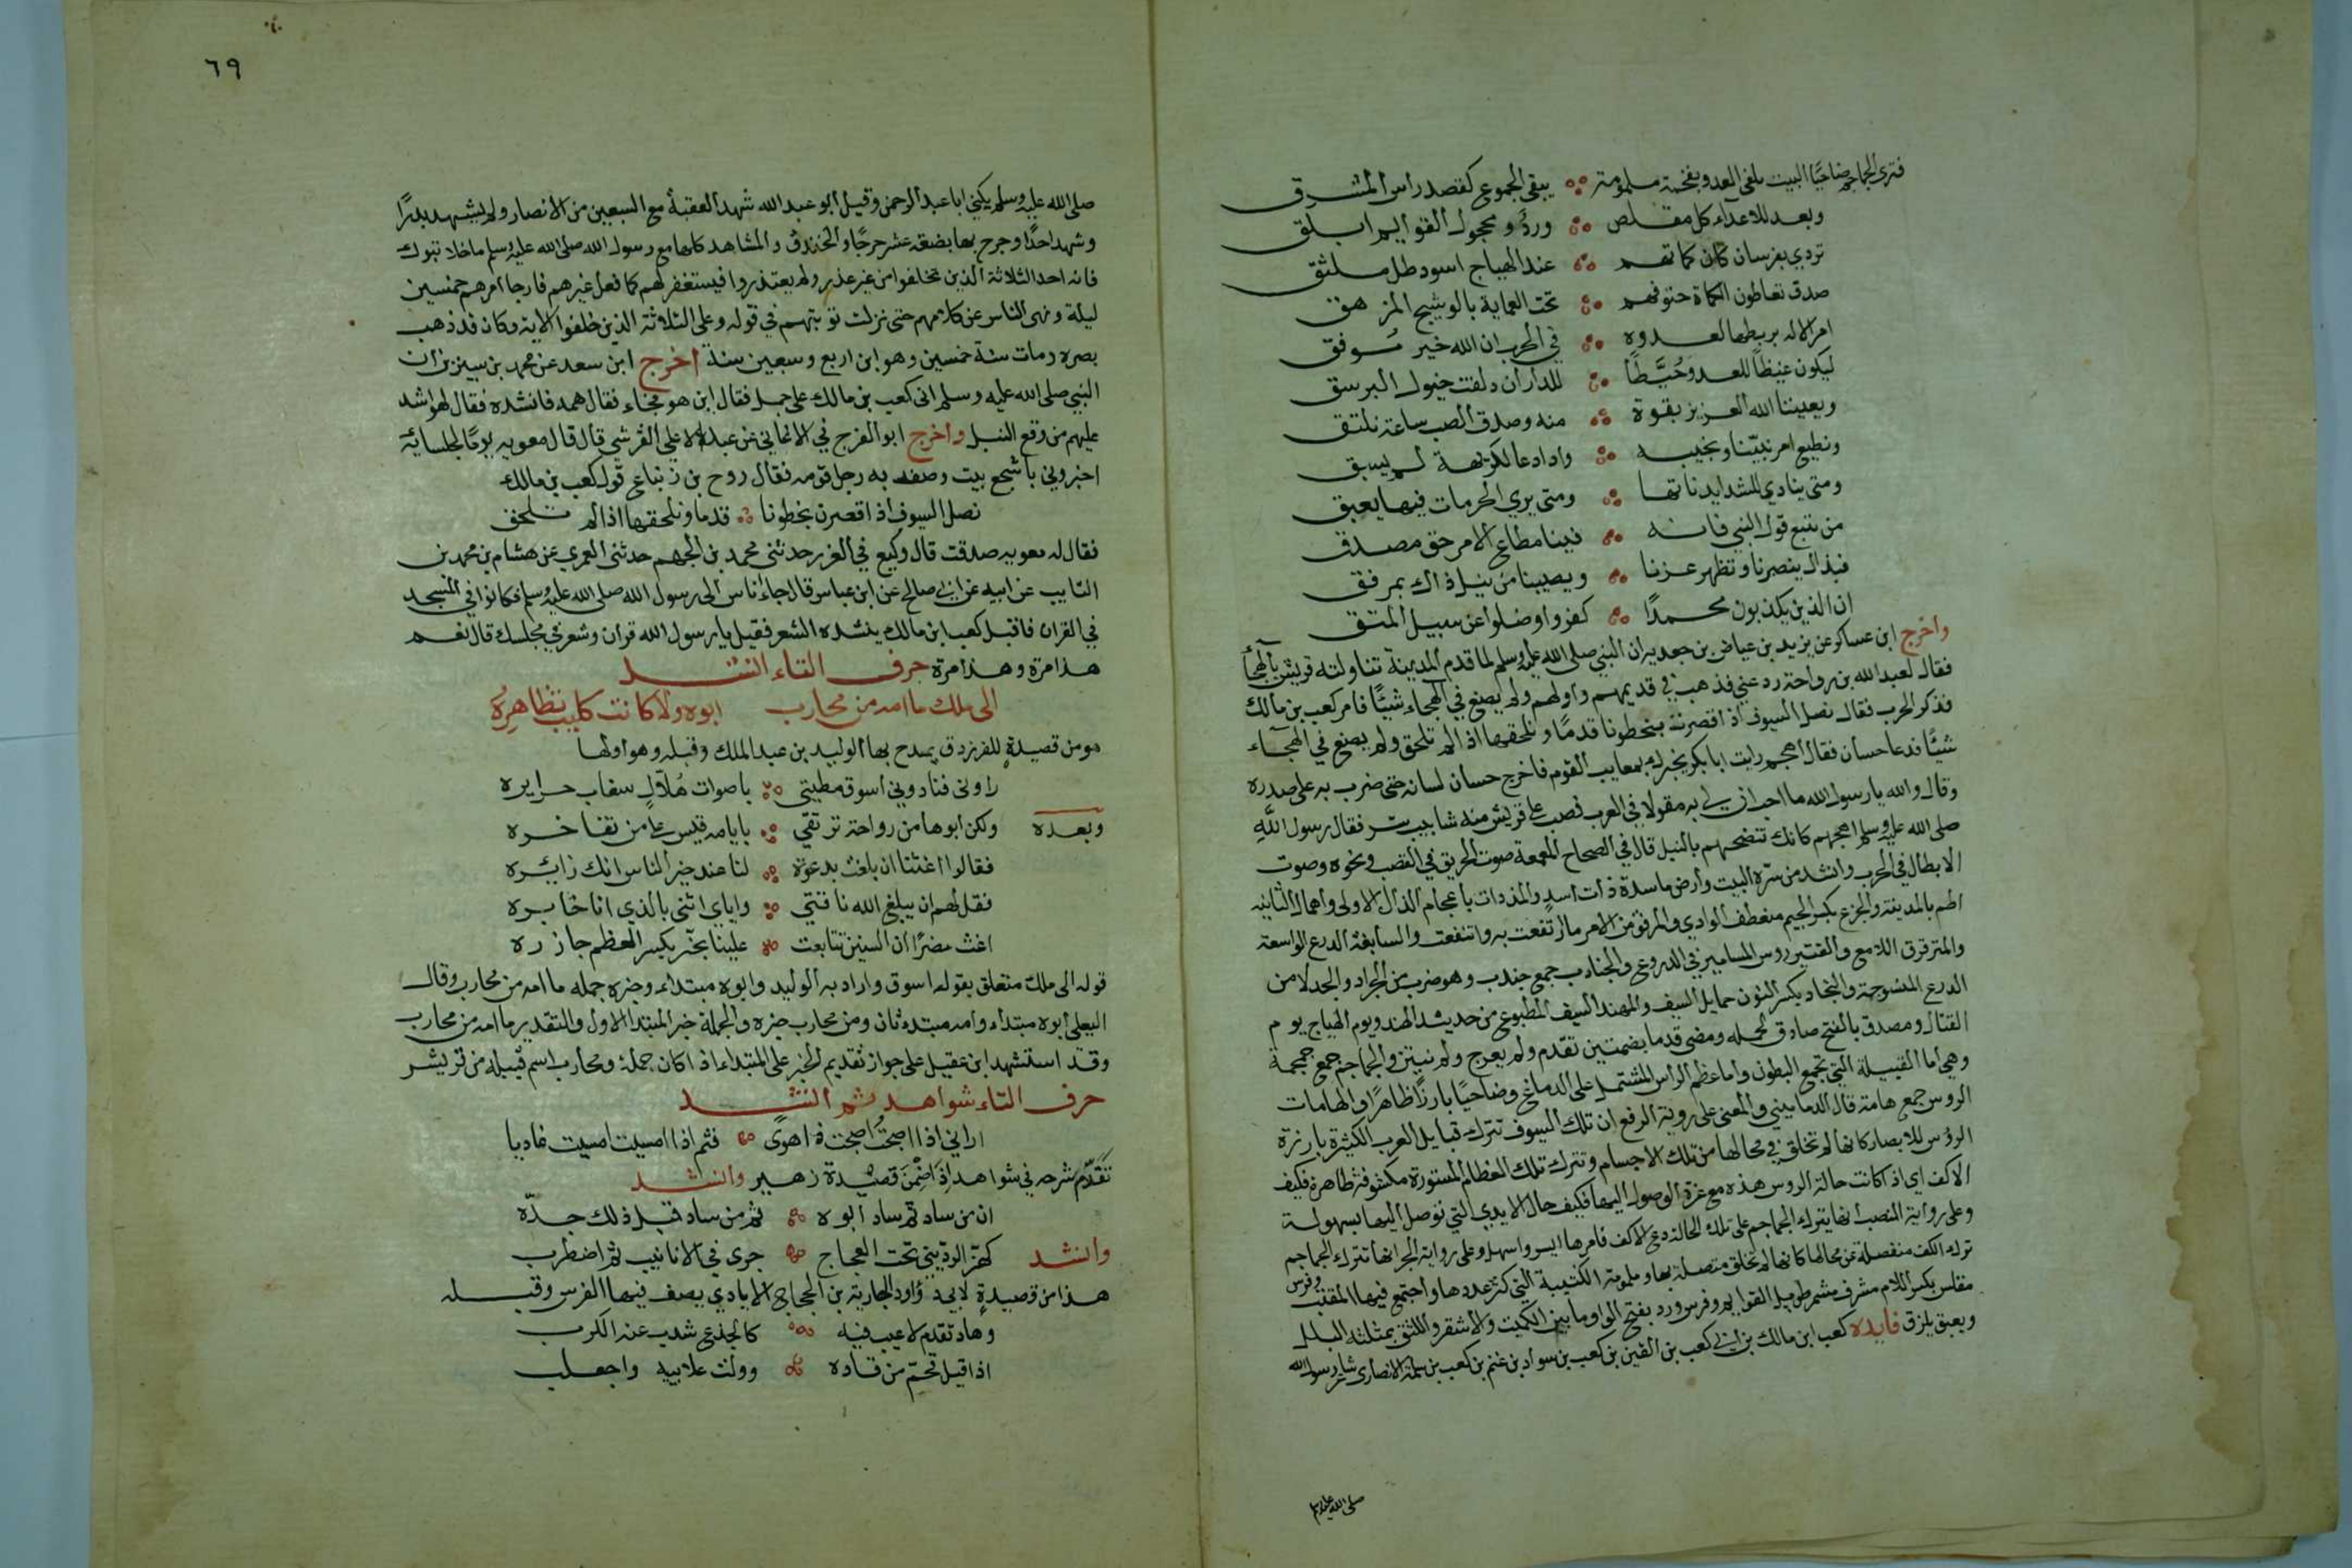 فترى الجماجم ضاحيًا البيت نلقى العدو بفخمة ملمومة ؞ يبقى الجموع كقصد راس المشرق
وبعد للاعداء كل مقلص ؞ ورد ومحجول القوايم ابلق
تردي بفرسان كان كماتهم ؞ عند الهياج اسود طل ملثق
صدق تعاطون الكماة حتوفهم ؞ تحت العماية بالوشيج المزهق
امر الاله بربطها لعدوه ؞ في الحرب ان الله خير موفق
ليكون غيظًا للعدو وحُيَّطًا ؞ للدار ان دلفت خيول البرسق
ويعيننا الله العزيز بقوة ؞ منه وصدق الصب ساعة نلتق
ونطيع امر نبيّنا ونجيبه ؞ واذا دعا لكريهة لم يسبق
ومتى ينادي للشدايد ناتها ؞ ومتى يري الحرمات فيها يعبق
من يتبع قول النبي فانه ؞ فينا مطاع الامر حق مصدق
فبذاك ينصرنا وتظهر عزنا ؞ ويصيبنا من نيل ذاك بمرفق
ان الذين يكذبون محمدًا ؞ كفروا وضلوا عن سبيل المتق
واخرج ابن عساكر عن يزيد بن عياض بن جعدبر ان النبي صلى الله عليه وسلم لما قدم المدينة تناولته قريش بالهجاء
فقال لعبد الله بن رواحة رد عني فذهب في قديمهم واولهم ولم يصنع في الهجاء شيئًا فامر كعب بن مالك
فذكر الحرب فقال نصل السيوف اذا قصرنه بخطونا قدمًا ونلحقها اذا لم تلحق ولم يصنع في الهجاء
شيئًا فدعا حسان فقال اهجهم رايت ابا بكر يخبرك بمعايب القوم فاخرج حسان لسانه حتى ضرب به على صدره
وقال والله يا رسول الله ما احب ان لي به مقولا في العرب فصب على قريش منه شابيب شر فقال رسول الله
صلى الله عليه وسلم اهجهم كانك تنضحهم بالنبل قال في الصحاح المعمعة صوت الحريق في القصب ونحوه وصوت
الابطال في الحرب وانشد من سرّه البيت وارض ماسدة ذات اسد والمذدات باعجام الذال الاولى واهمال الثانية
اطم بالمدينة والجزع بكسر الجيم منعطف الوادي والمرفق من الامر ما ارتفعت به وانتفعت والسابغة الدرع الواسعة
والمترقرق اللامع والقتير روس المسامير في الدروع والجنادب جمع جندب وهو ضرب من الجراد والجدلا من
الدرع المنسوجة والنجاد بكسر النون حمايل السيف والمهند السيف المطبوع من حديد الهند ويوم الهياج يوم
القتال ومصدق بالفتح صادق الحمله ومضى قدما بضمتين تقدم ولم يعرج ولم ينثن والجماجم جمع جمجمة
وهي اما القبيلة التي تجمع البطون واما عظم الراس المشتمل على الدماغ وضاحيًا بارزًا ظاهرًا والهامات
الروس جمع هامة قال الدماميني والمعنى على روية الرفع ان تلك السيوف تترك قبايل العرب الكثيرة بارزة
الروس للابصار كانها لم تخلق في محالها من تلك الاجسام وتترك تلك العظام المستورة مكشوفة ظاهرة فكيف
الاكف اي اذا كانت حالة الروس هذه مع عزة الوصول اليها فكيف حال الايدي التي توصل اليها بسهولة
وعلى رواية النصب انها تترك الجماجم على تلك الحالة دع الاكف فامرها ايسر واسهل وعلى رواية الجر انها تترك الجماجم
ترك الاكف منفصلة عن محالها كانها لم تخلق متصلة بها وملمومة الكتيبة التي كثر عددها واجتمع فيها المقنب وفرس
مقلس بكسر اللام مشرف مشمر طويل القوايم وفرس ورد بفتح الواو ما بين الكميت والاشقر واللثق بمثلثة البلل
ويعبق يلزق فايده كعب ابن مالك بن ابي كعب بن القين بن كعب بن سواد بن غنم بن كعب بن سلمة الانصاري شاعر رسول الله
صلى الله عليه وسلم
٦٩
صلى الله عليه وسلم يكنى ابا عبد الرحمن وقيل ابو عبد الله شهد العقبة مع السبعين من الانصار ولم يشهد بدرًا
وشهد احدًا وجرح بها بضعة عشر جرحًا والخندق والمشاهد كلها مع رسول الله صلى الله عليه وسلم ما خلا تبوك
فانه احد الثلاثة الذين تخلفوا من غير عذر ولم يعتذروا فيستغفر لهم كما فعل غيرهم فارجا امرهم خمسين
ليلة ونهى الناس عن كلامهم حتى نزلت توبتهم في قوله وعلى الثلاثة الذين خلفوا الاية وكان قد ذهب
بصره ومات سنة خمسين وهو ابن اربع وسبعين سنة اخرج ابن سعد عن محمد بن سيرين ان
النبي صلى الله عليه وسلم اتى كعب بن مالك على جمل فقال ابن هو فجاء فقال همه فانشده فقال لهو اشد
عليهم من وقع النبل واخرج ابو الفرج في الاغاني عن عبد الاعلي القرشي قال قال معويه يومًا لجلسائه
اخبروني باشجع بيت وصف به رجل قومه فقال روح بن زنباع قول كعب بن مالك
نصل السيوف اذا قصرن بخطونا ؞ قدما ونلحقها اذا لم تلحق
فقال له معويه صدقت قال وكيع في الغرر حدثني محمد بن الجهم حدثني العمري عن هشام بن محمد بن
السايب عن ابيه عن ابي صالح عن ابن عباس قال جاء ناس الى رسول الله صلى الله عليه وسلم فكانوا في المسجد
في القران فاقبل كعب ابن مالك ينشده الشعر فقيل يا رسول الله قران وشعر في مجلسك قال نعم
هذا مرة وهذا مرة حرف التاء انشد
الى ملك ما امه من محارب ابوه ولا كانت كليب تظاهره
هو من قصيدة للفرزدق يمدح بها الوليد بن عبد الملك وقبله وهو اولها
راوني فنادوني اسوق مطيتي ؞ باصوات هُلّالٍ سغاب حرايره
وبعده ولكن ابوها من رواحة ترتقي ؞ بايامه قيس على من تفاخره
فقالوا اغثنا ان بلغت بدعوة ؞ لنا عند خير الناس انك زائره
فقل لهم ان يبلغ الله ناقتي ؞ واياي اثنى بالذي انا خابره
اغث مضرًا ان السنين تتابعت ؞ علينا بحز يكسر العظم جازره
قوله الى ملك متعلق بقوله اسوق واراد به الوليد وابوه مبتداء وخبره جمله ما امه من محارب وقال
البعلى ابوه مبتداء وامه مبتدء ثان ومن محارب خبره والجملة خبر المبتدا الاول والتقدير ما امه من محارب
وقد استشهد ابن عقيل على جواز تقديم الخبر على المبتداء اذا كان جملة ومحارب اسم قبيله من قريش
حرف الثاء شواهد ثم انشد
اراني اذا اصبحتُ اصبحت ذا هوى ؞ فثم اذا امسيت امسيت غاديا
تَقَدّم شرحه في شواهد اِذَا ضِمْنَ قصيدة زهير وانشد
ان من ساد ثم ساد ابوه ؞ ثم من ساد قبل ذلك جدّه
وانشد كهز الرديني تحت العجاج ؞ جرى في الانابيب ثم اضطرب
هذا من قصيدة لابي دؤاود الجارية بن الحجاج الايادي يصف فيها الفرس وقبله
وهاد تقدم لاعيب فيه ؞ كالجذع شذب عنه الكرب
اذا قيل قحّم من قاده ؞ وولت علابيه واجعلب